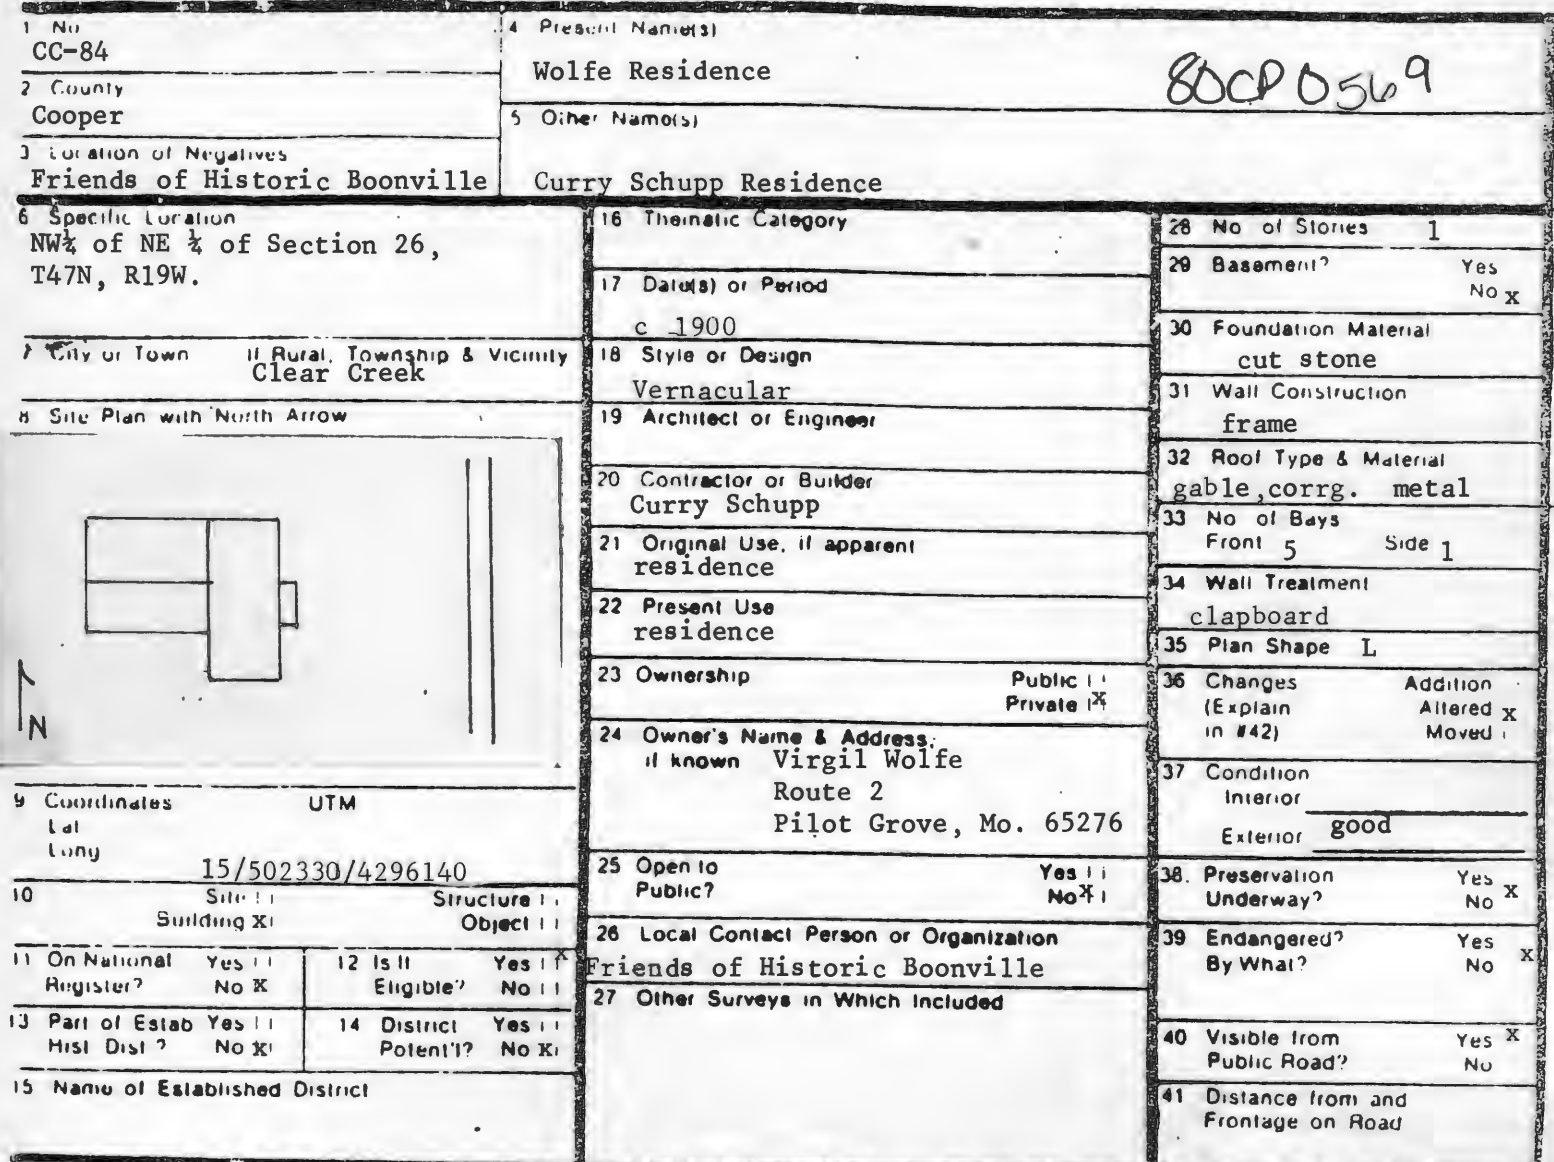 1 No
CC-84
2 County
Cooper
3 Location of Negatives
Friends of Historic Boonville
4 Present Name(s)
Wolfe Residence
80CP0569
5 Other Name(s)
Curry Schupp Residence
6 Specific Location
NW¼ of NE ¼ of Section 26,
T47N, R19W.
7 City or Town If Rural, Township & Vicinity
Clear Creek
8 Site Plan with North Arrow
N
9 Coordinates UTM
Lat
Long
15/502330/4296140
10 Site Structure
Building X Object
11 On National Yes
Register? No X
12 Is It Yes X
Eligible? No
13 Part of Estab Yes
Hist Dist ? No X
14 District Yes
Potent'l? No X
15 Name of Established District
16 Thematic Category
17 Date(s) or Period
c 1900
18 Style or Design
Vernacular
19 Architect or Engineer
20 Contractor or Builder
Curry Schupp
21 Original Use, if apparent
residence
22 Present Use
residence
23 Ownership Public
Private X
24 Owner's Name & Address,
if known Virgil Wolfe
Route 2
Pilot Grove, Mo. 65276
25 Open to Yes
Public? No X
26 Local Contact Person or Organization
Friends of Historic Boonville
27 Other Surveys in Which Included
28 No of Stories 1
29 Basement? Yes
No x
30 Foundation Material
cut stone
31 Wall Construction
frame
32 Roof Type & Material
gable,corrg. metal
33 No of Bays
Front 5 Side 1
34 Wall Treatment
clapboard
35 Plan Shape L
36 Changes Addition
(Explain Altered x
in #42) Moved
37 Condition
Interior
Exterior good
38. Preservation Yes
Underway? No x
39 Endangered? Yes
By What? No x
40 Visible from Yes x
Public Road? No
41 Distance from and
Frontage on Road